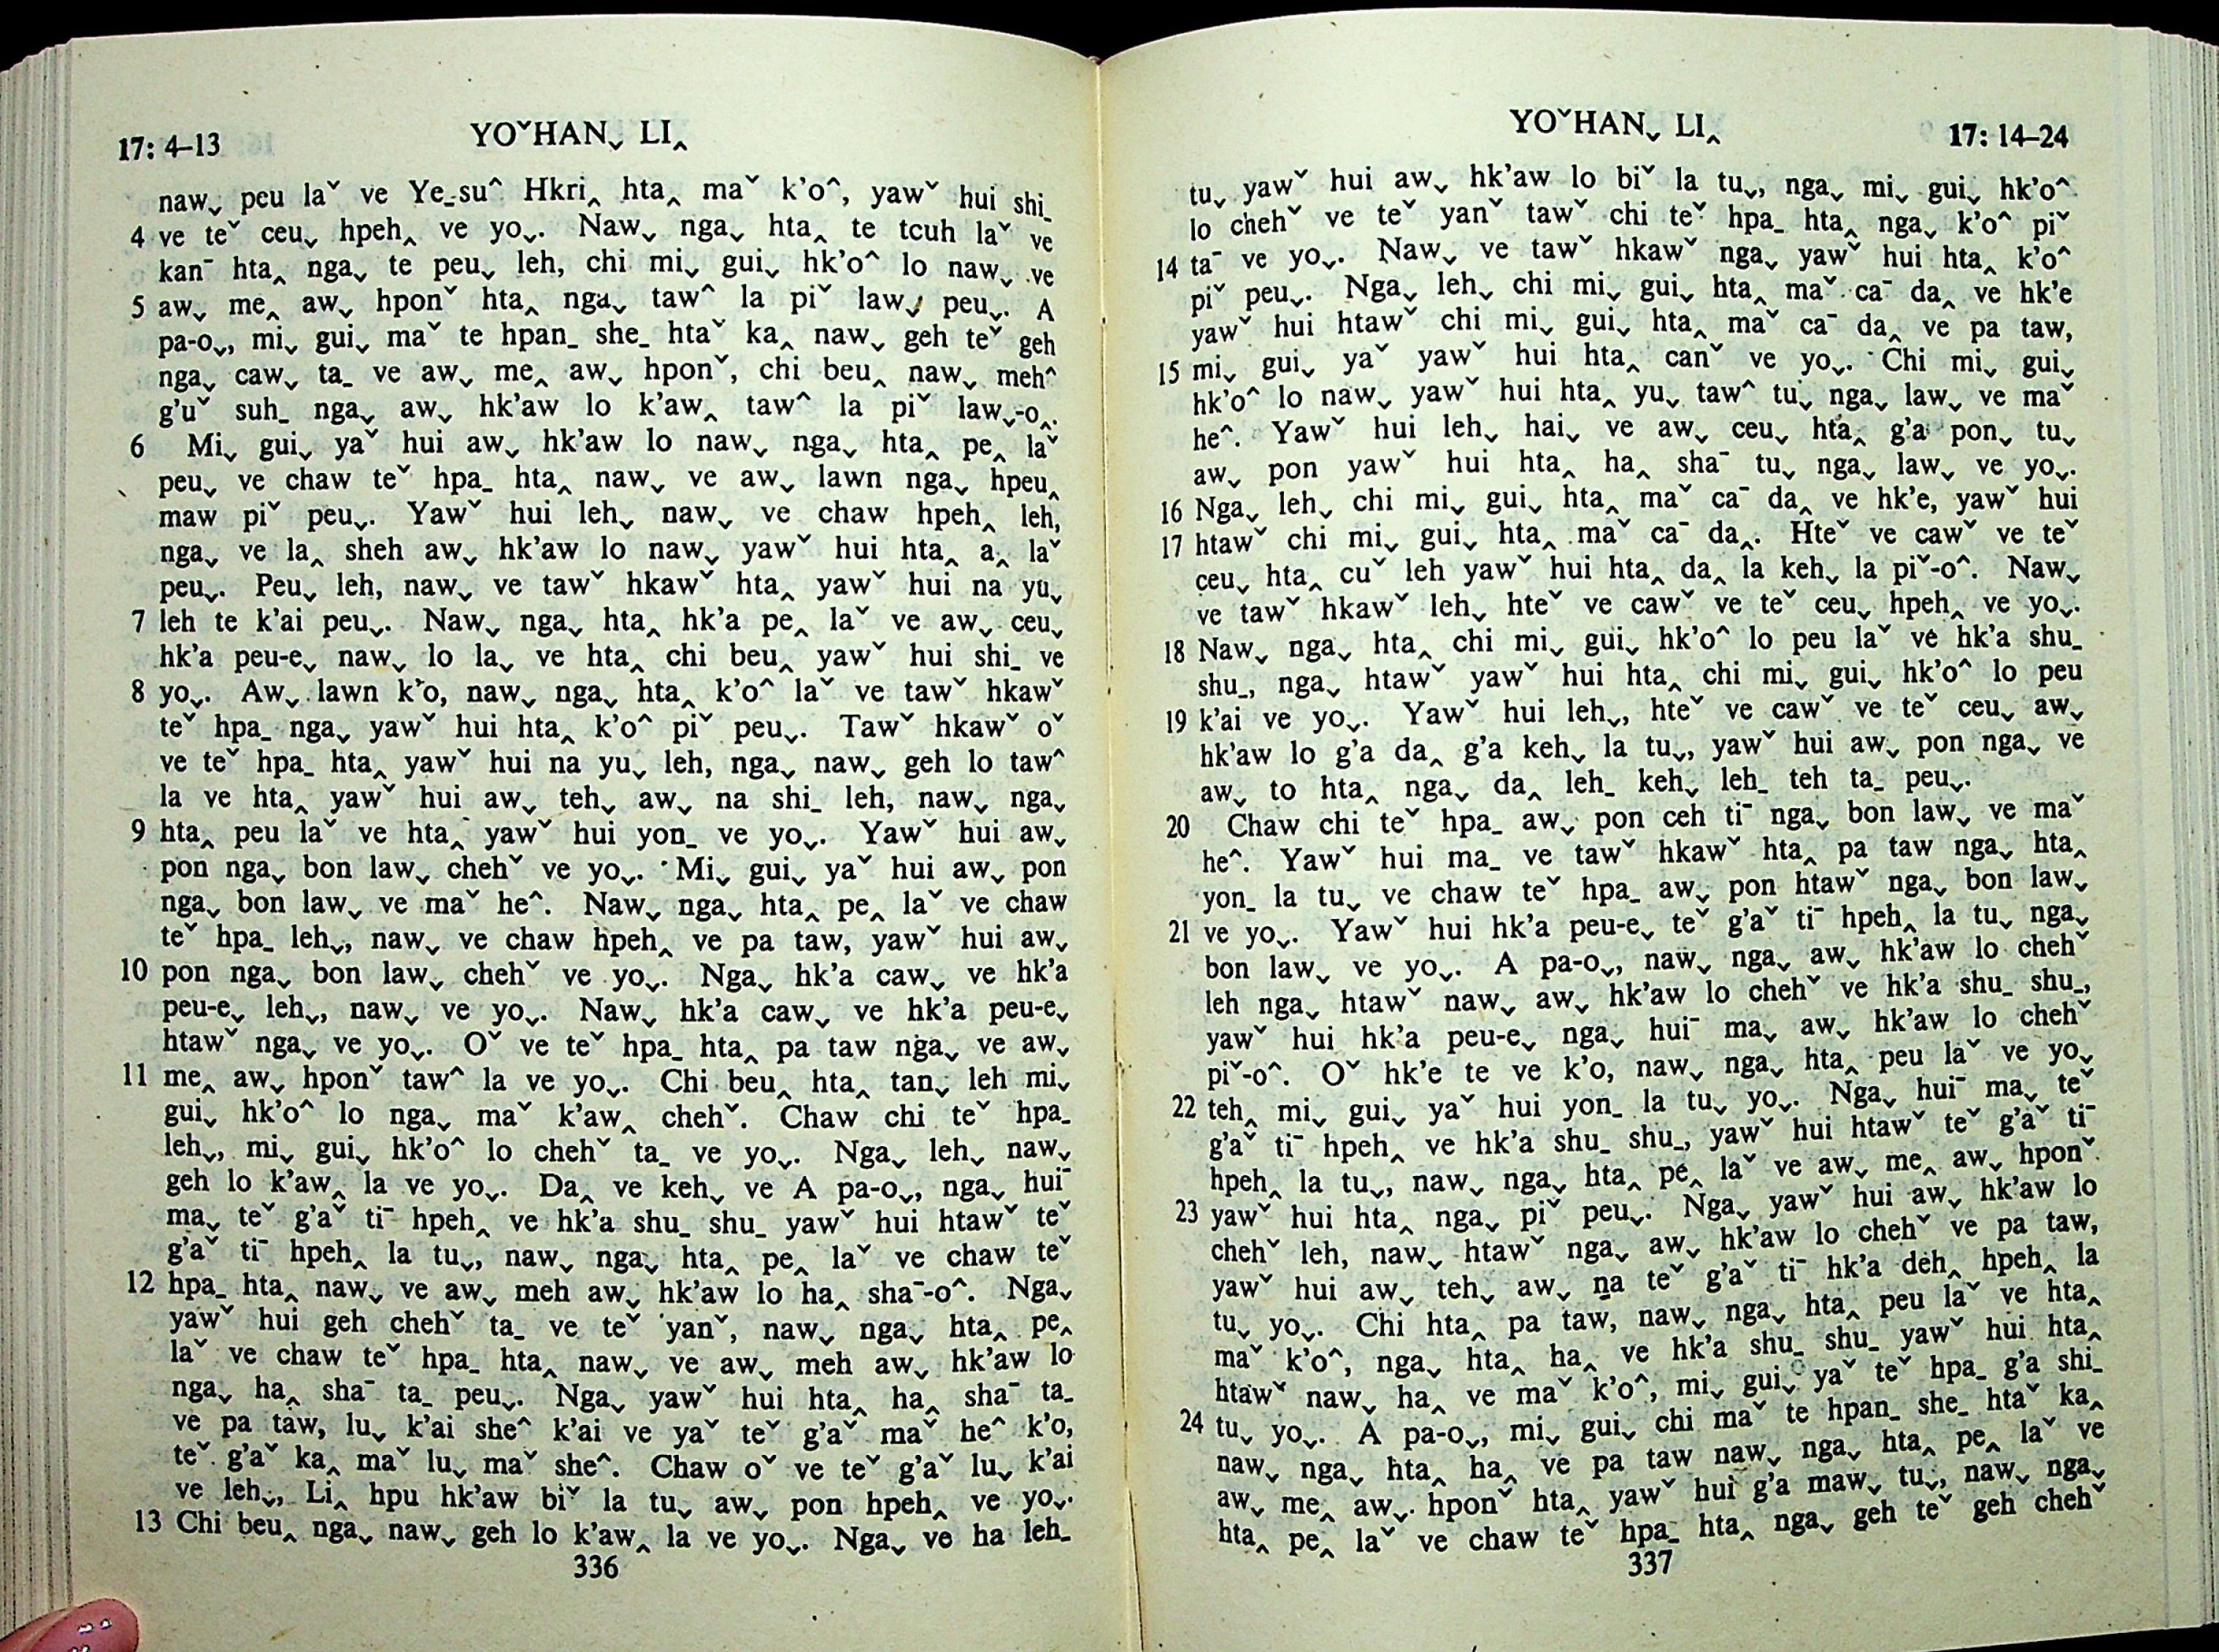 17: 4–13
YOˇHANˬ LI‸
nawˬ peu laˇ ve Yeˍsu^ Hkri‸ hta‸ maˇ k'o^, yawˇ hui shiˍ
4 ve teˇ ceuˬ hpeh‸ ve yoˬ. Nawˬ ngaˬ hta‸ te tcuh laˇ ve
kan¯ hta‸ ngaˬ te peuˬ leh, chi miˬ guiˬ hk'o^ lo nawˬ ve
5 awˬ me‸ awˬ hponˇ hta‸ ngaˬ taw^ la piˇ lawˬ peuˬ. A
pa-oˬ, miˬ guiˬ maˇ te hpanˍ sheˍ htaˇ ka‸ nawˬ geh teˇ geh
ngaˬ cawˬ taˍ ve awˬ me‸ awˬ hponˇ, chi beu‸ nawˬ meh^
g'uˇ suhˍ ngaˬ awˬ hk'aw lo k'aw‸ taw^ la piˇ lawˬ-o‸.
6 Miˬ guiˬ yaˇ hui awˬ hk'aw lo nawˬ ngaˬ hta‸ pe‸ laˇ
peuˬ ve chaw teˇ hpaˍ hta‸ nawˬ ve awˬ lawn ngaˬ hpeu‸
maw piˇ peuˬ. Yawˇ hui lehˬ nawˬ ve chaw hpeh‸ leh,
ngaˬ ve la‸ sheh awˬ hk'aw lo nawˬ yawˇ hui hta‸ a‸ laˇ
peuˬ. Peuˬ leh, nawˬ ve tawˇ hkawˇ hta‸ yawˇ hui na yuˬ
7 leh te k'ai peuˬ. Nawˬ ngaˬ hta‸ hk'a pe‸ laˇ ve awˬ ceuˬ
hk'a peu-eˬ nawˬ lo laˬ ve hta‸ chi beu‸ yawˇ hui shiˍ ve
8 yoˬ. Awˬ lawn k'o, nawˬ ngaˬ hta‸ k'o^ laˇ ve tawˇ hkawˇ
teˇ hpaˍ ngaˬ yawˇ hui hta‸ k'o^ piˇ peuˬ. Tawˇ hkawˇ oˇ
ve teˇ hpaˍ hta‸ yawˇ hui na yuˬ leh, ngaˬ nawˬ geh lo taw^
la ve hta‸ yawˇ hui awˬ tehˬ awˬ na shiˍ leh, nawˬ ngaˬ
9 hta‸ peu laˇ ve hta‸ yawˇ hui yonˍ ve yoˬ. Yawˇ hui awˬ
pon ngaˬ bon lawˬ chehˇ ve yoˬ. Miˬ guiˬ yaˇ hui awˬ pon
ngaˬ bon lawˬ ve maˇ he^. Nawˬ ngaˬ hta‸ pe‸ laˇ ve chaw
teˇ hpaˍ lehˬ, nawˬ ve chaw hpeh‸ ve pa taw, yawˇ hui awˬ
10 pon ngaˬ bon lawˬ chehˇ ve yoˬ. Ngaˬ hk'a cawˬ ve hk'a
peu-eˬ lehˬ, nawˬ ve yoˬ. Nawˬ hk'a cawˬ ve hk'a peu-eˬ
htawˇ ngaˬ ve yoˬ. Oˇ ve teˇ hpaˍ hta‸ pa taw ngaˬ ve awˬ
11 me‸ awˬ hponˇ taw^ la ve yoˬ. Chi beu‸ hta‸ tanˬ leh miˬ
guiˬ hk'o^ lo ngaˬ maˇ k'aw‸ chehˇ. Chaw chi teˇ hpaˍ
lehˬ, miˬ guiˬ hk'o^ lo chehˇ taˍ ve yoˬ. Ngaˬ lehˬ nawˬ
geh lo k'aw‸ la ve yoˬ. Da‸ ve kehˬ ve A pa-oˬ, ngaˬ hui¯
maˬ teˇ g'aˇ ti¯ hpeh‸ ve hk'a shuˍ shuˍ yawˇ hui htawˇ teˇ
g'aˇ ti¯ hpeh‸ la tuˬ, nawˬ ngaˬ hta‸ pe‸ laˇ ve chaw teˇ
12 hpaˍ hta‸ nawˬ ve awˬ meh awˬ hk'aw lo ha‸ sha¯-o^. Ngaˬ
yawˇ hui geh chehˇ taˍ ve teˇ yanˇ, nawˬ ngaˬ hta‸ pe‸
laˇ ve chaw teˇ hpaˍ hta‸ nawˬ ve awˬ meh awˬ hk'aw lo
ngaˬ ha‸ sha¯ taˍ peuˬ. Ngaˬ yawˇ hui hta‸ ha‸ sha¯ taˍ
ve pa taw, luˬ k'ai she^ k'ai ve yaˇ teˇ g'aˇ maˇ he^ k'o,
teˇ g'aˇ ka‸ maˇ luˬ maˇ she^. Chaw oˇ ve teˇ g'aˇ luˬ k'ai
ve lehˬ, Li‸ hpu hk'aw biˇ la tuˬ awˬ pon hpeh‸ ve yoˬ.
13 Chi beu‸ ngaˬ nawˬ geh lo k'aw‸ la ve yoˬ. Ngaˬ ve ha lehˍ
336
YOˇHANˬ LI‸
17: 14–24
tuˬ yawˇ hui awˬ hk'aw lo biˇ la tuˬ, ngaˬ miˬ guiˬ hk'o^
lo chehˇ ve teˇ yanˇ tawˇ chi teˇ hpaˍ hta‸ ngaˬ k'o^ piˇ
14 ta¯ ve yoˬ. Nawˬ ve tawˇ hkawˇ ngaˬ yawˇ hui hta‸ k'o^
piˇ peuˬ. Ngaˬ lehˬ chi miˬ guiˬ hta‸ maˇ ca¯ da‸ ve hk'e
yawˇ hui htawˇ chi miˬ guiˬ hta‸ maˇ ca¯ da‸ ve pa taw,
15 miˬ guiˬ yaˇ yawˇ hui hta‸ canˇ ve yoˬ. Chi miˬ guiˬ
hk'o^ lo nawˬ yawˇ hui hta‸ yuˬ taw^ tuˬ ngaˬ lawˬ ve maˇ
he^. Yawˇ hui lehˬ haiˬ ve awˬ ceuˬ hta‸ g'a ponˬ tuˬ
awˬ pon yawˇ hui hta‸ ha‸ sha¯ tuˬ ngaˬ lawˬ ve yoˬ.
16 Ngaˬ lehˬ chi miˬ guiˬ hta‸ maˇ ca¯ da‸ ve hk'e, yawˇ hui
17 htawˇ chi miˬ guiˬ hta‸ maˇ ca¯ da‸. Hteˇ ve cawˇ ve teˇ
ceuˬ hta‸ cuˇ leh yawˇ hui hta‸ da‸ la kehˬ la piˇ-o^. Nawˬ
ve tawˇ hkawˇ lehˬ hteˇ ve cawˇ ve teˇ ceuˬ hpeh‸ ve yoˬ.
18 Nawˬ ngaˬ hta‸ chi miˬ guiˬ hk'o^ lo peu laˇ ve hk'a shuˍ
shuˍ, ngaˬ htawˇ yawˇ hui hta‸ chi miˬ guiˬ hk'o^ lo peu
19 k'ai ve yoˬ. Yawˇ hui lehˬ, hteˇ ve cawˇ ve teˇ ceuˬ awˬ
hk'aw lo g'a da‸ g'a kehˬ la tuˬ, yawˇ hui awˬ pon ngaˬ ve
awˬ to hta‸ ngaˬ da‸ lehˍ kehˬ lehˍ teh taˍ peuˬ.
20 Chaw chi teˇ hpaˍ awˬ pon ceh ti¯ ngaˬ bon lawˬ ve maˇ
he^. Yawˇ hui maˍ ve tawˇ hkawˇ hta‸ pa taw ngaˬ hta‸
yonˍ la tuˬ ve chaw teˇ hpaˍ awˬ pon htawˇ ngaˬ bon lawˬ
21 ve yoˬ. Yawˇ hui hk'a peu-eˬ teˇ g'aˇ ti¯ hpeh‸ la tuˬ ngaˬ
bon lawˬ ve yoˬ. A pa-oˬ, nawˬ ngaˬ awˬ hk'aw lo chehˇ
leh ngaˬ htawˇ nawˬ awˬ hk'aw lo chehˇ ve hk'a shuˍ shuˍ,
yawˇ hui hk'a peu-eˬ ngaˬ hui¯ maˬ awˬ hk'aw lo chehˇ
piˇ-o^. Oˇ hk'e te ve k'o, nawˬ ngaˬ hta‸ peu laˇ ve yoˬ
22 teh‸ miˬ guiˬ yaˇ hui yonˍ la tuˬ yoˬ. Ngaˬ hui¯ maˬ teˇ
g'aˇ ti¯ hpeh‸ ve hk'a shuˍ shuˍ, yawˇ hui htawˇ teˇ g'aˇ ti¯
hpeh‸ la tuˬ, nawˬ ngaˬ hta‸ pe‸ laˇ ve awˬ me‸ awˬ hponˇ
23 yawˇ hui hta‸ ngaˬ piˇ peuˬ. Ngaˬ yawˇ hui awˬ hk'aw lo
chehˇ leh, nawˬ htawˇ ngaˬ awˬ hk'aw lo chehˇ ve pa taw,
yawˇ hui awˬ tehˬ awˬ na teˇ g'aˇ ti¯ hk'a deh‸ hpeh‸ la
tuˬ yoˬ. Chi hta‸ pa taw, nawˬ ngaˬ hta‸ peu laˇ ve hta‸
maˇ k'o^, ngaˬ hta‸ ha‸ ve hk'a shuˍ shuˍ yawˇ hui hta‸
htawˇ nawˬ ha‸ ve maˇ k'o^, miˬ guiˬ yaˇ teˇ hpaˍ g'a shiˍ
24 tuˬ yoˬ. A pa-oˬ, miˬ guiˬ chi maˇ te hpanˍ sheˍ htaˇ ka‸
nawˬ ngaˬ hta‸ ha‸ ve pa taw nawˬ ngaˬ hta‸ pe‸ laˇ ve
awˬ me‸ awˬ hponˇ hta‸ yawˇ hui g'a mawˬ tuˬ, nawˬ ngaˬ
hta‸ pe‸ laˇ ve chaw teˇ hpaˍ hta‸ ngaˬ geh teˇ geh chehˇ
337